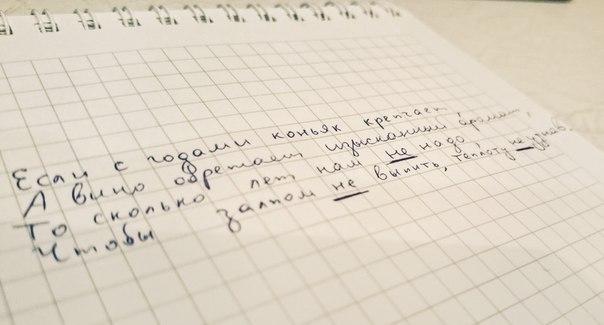 Если с годами коньяк крепчает
А вино обретает изысканный аромат,
То сколько лет нам не надо
Чтобы залпом не выпить, теплоту не узнав.